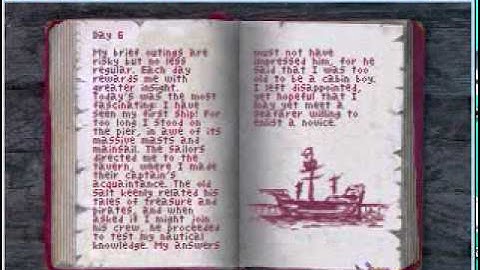 Day 6
My brief outings are
risky but no less
regular. Each day
rewards me with
greater insight.
Today's was the most
fascinating: I have
seen my first ship! For
too long I stood on
the pier, in awe of its
massive masts and
mainsail. The sailors
directed me to the
tavern, where I made
their captain's
acquaintance. The old
salt keenly related his
tales of treasure and
pirates, and when
asked if I might join
his crew, he proceeded
to test my nautical
knowledge. My answers
must not have
impressed him, for he
said that I was too
old to be a cabin boy.
I left disappointed,
yet hopeful that I
may yet meet a
seafarer willing to
enlist a novice.